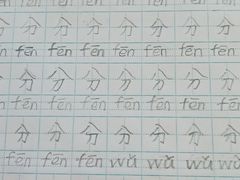 分 分 分 分 分 分 分
fēn fēn fēn fēn fēn fēn fēn
分 分 分 分 分 分 分
fēn fēn fēn fēn fēn fēn fēn
分 分 分 分 分 分 分
fēn fēn fēn wǔ wǔ wǔ wǔ